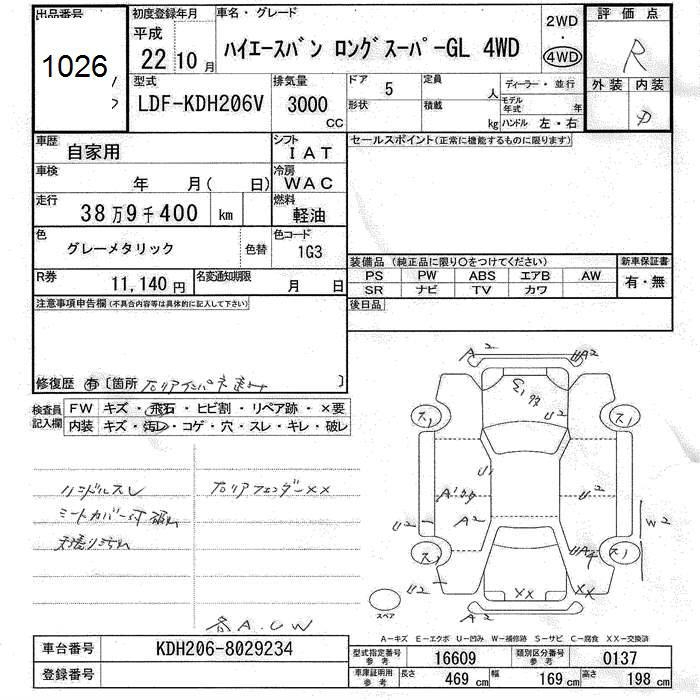 出品番号
1026
初度登録年月
平成
22 10月
車名・グレード
ハイエースバン ロングスーパーGL 4WD
2WD
・
4WD
評価点
R
型式
LDF-KDH206V
排気量
3000
CC
ドア
5
形状
定員
人
積載
kg
ディーラー・並行
モデル年式
年
ハンドル 左・右
外装 内装
D
車歴
自家用
シフト
IAT
セールスポイント(正常に機能するものに限ります)
車検
年 月( 日)
冷房
WAC
走行
38万9千400 km
燃料
軽油
色
グレーメタリック
色替
色コード
1G3
装備品 (純正品に限り〇をつけてください)
新車保証書
PS PW ABS エアB AW
有・無
SR ナビ TV カワ
R券
11,140円
名変通知期限
月 日
後日品
注意事項申告欄(不具合内容等は具体的に記入して下さい)
修復歴 有 〔箇所 〕
検査員
記入欄
FW キズ・飛石・ヒビ割・リペア跡・×要
内装 キズ・汚レ・コゲ・穴・スレ・キレ・破レ
ハンドルスレ
右リアフェンダーXX
シートカバー付
天張り汚れ
各A.U.W
A2
UA2
E1
U2
ス1
ス1
U1
A1
A2
U2
U2
W2
ス1
ス1
UA4
U2
XX
XX
A2
スペア
A-キズ E-エクボ U-凹み W-補修跡 S-サビ C-腐食 XX-交換済
車台番号
KDH206-8029234
登録番号
型式指定番号
参考
16609
類別区分番号
参考
0137
車庫証明用
参考
長さ 469 cm
幅 169 cm
高さ 198 cm